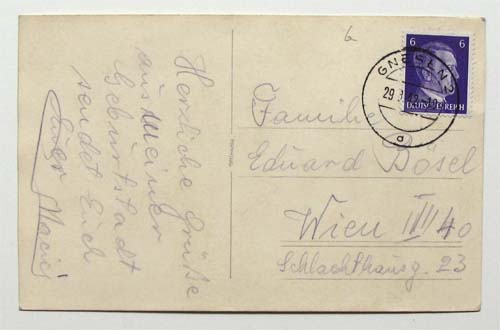 Herzliche Grüße
aus meiner
Geburtsstadt
sendet Euch
Euer
6
6 6
DEUTSCHES REICH
GNESEN 2
29.
a
Familie
Eduard Bosel
Wien III/40
Schlachthausg. 23